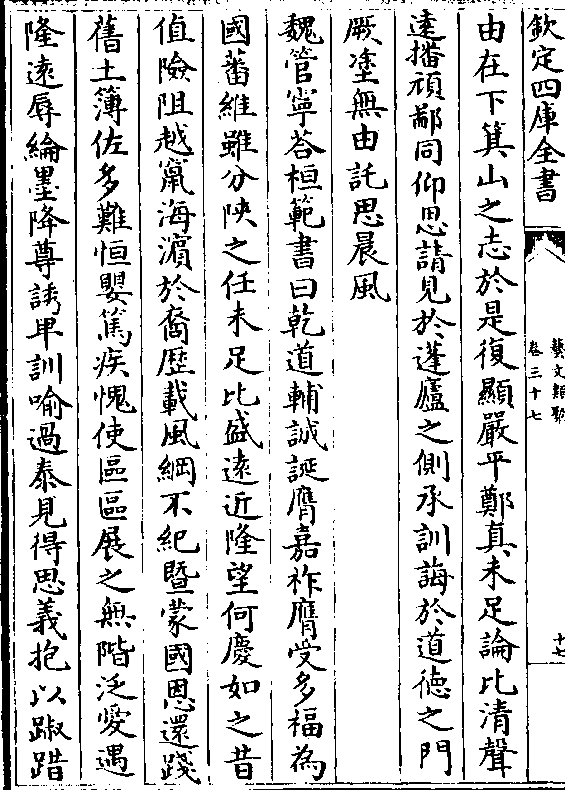 欽定四庫全書
藝文類聚
卷三十七
十七
由在下箕山之志於是復顯嚴平鄭真未足論比清聲
遠播頑鄙同仰思請見於蓬廬之側承訓誨於道徳之門
厥塗無由託思晨風
魏管寧荅桓範書曰乾道輔誠誕膺嘉祚膺受多福為
國蕃維雖分陜之任未足比盛遠近隆望何慶如之昔
值險阻越竄海濵於裔歴載風綱不紀暨蒙國恩還踐
舊土簿佐多難恒嬰篤疾愧使區區展之無階泛愛遇
隆遠辱綸墨降尊誘卑訓喻過泰見得思義抱以踧踖